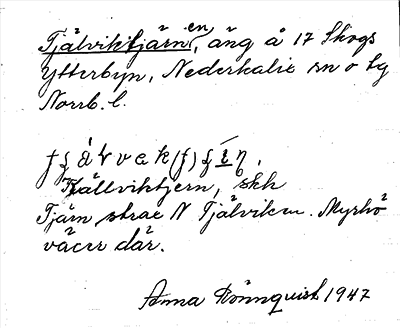 Tjälviktjärnen, äng å 17 Skogs
Ytterbyn, Nederkalix sn o hg
Norrb. l.
Kjällviktjern, skh
Tjärn strax N Tjälviken. Myrhö
växer där.
Anna Rönnquist 1947